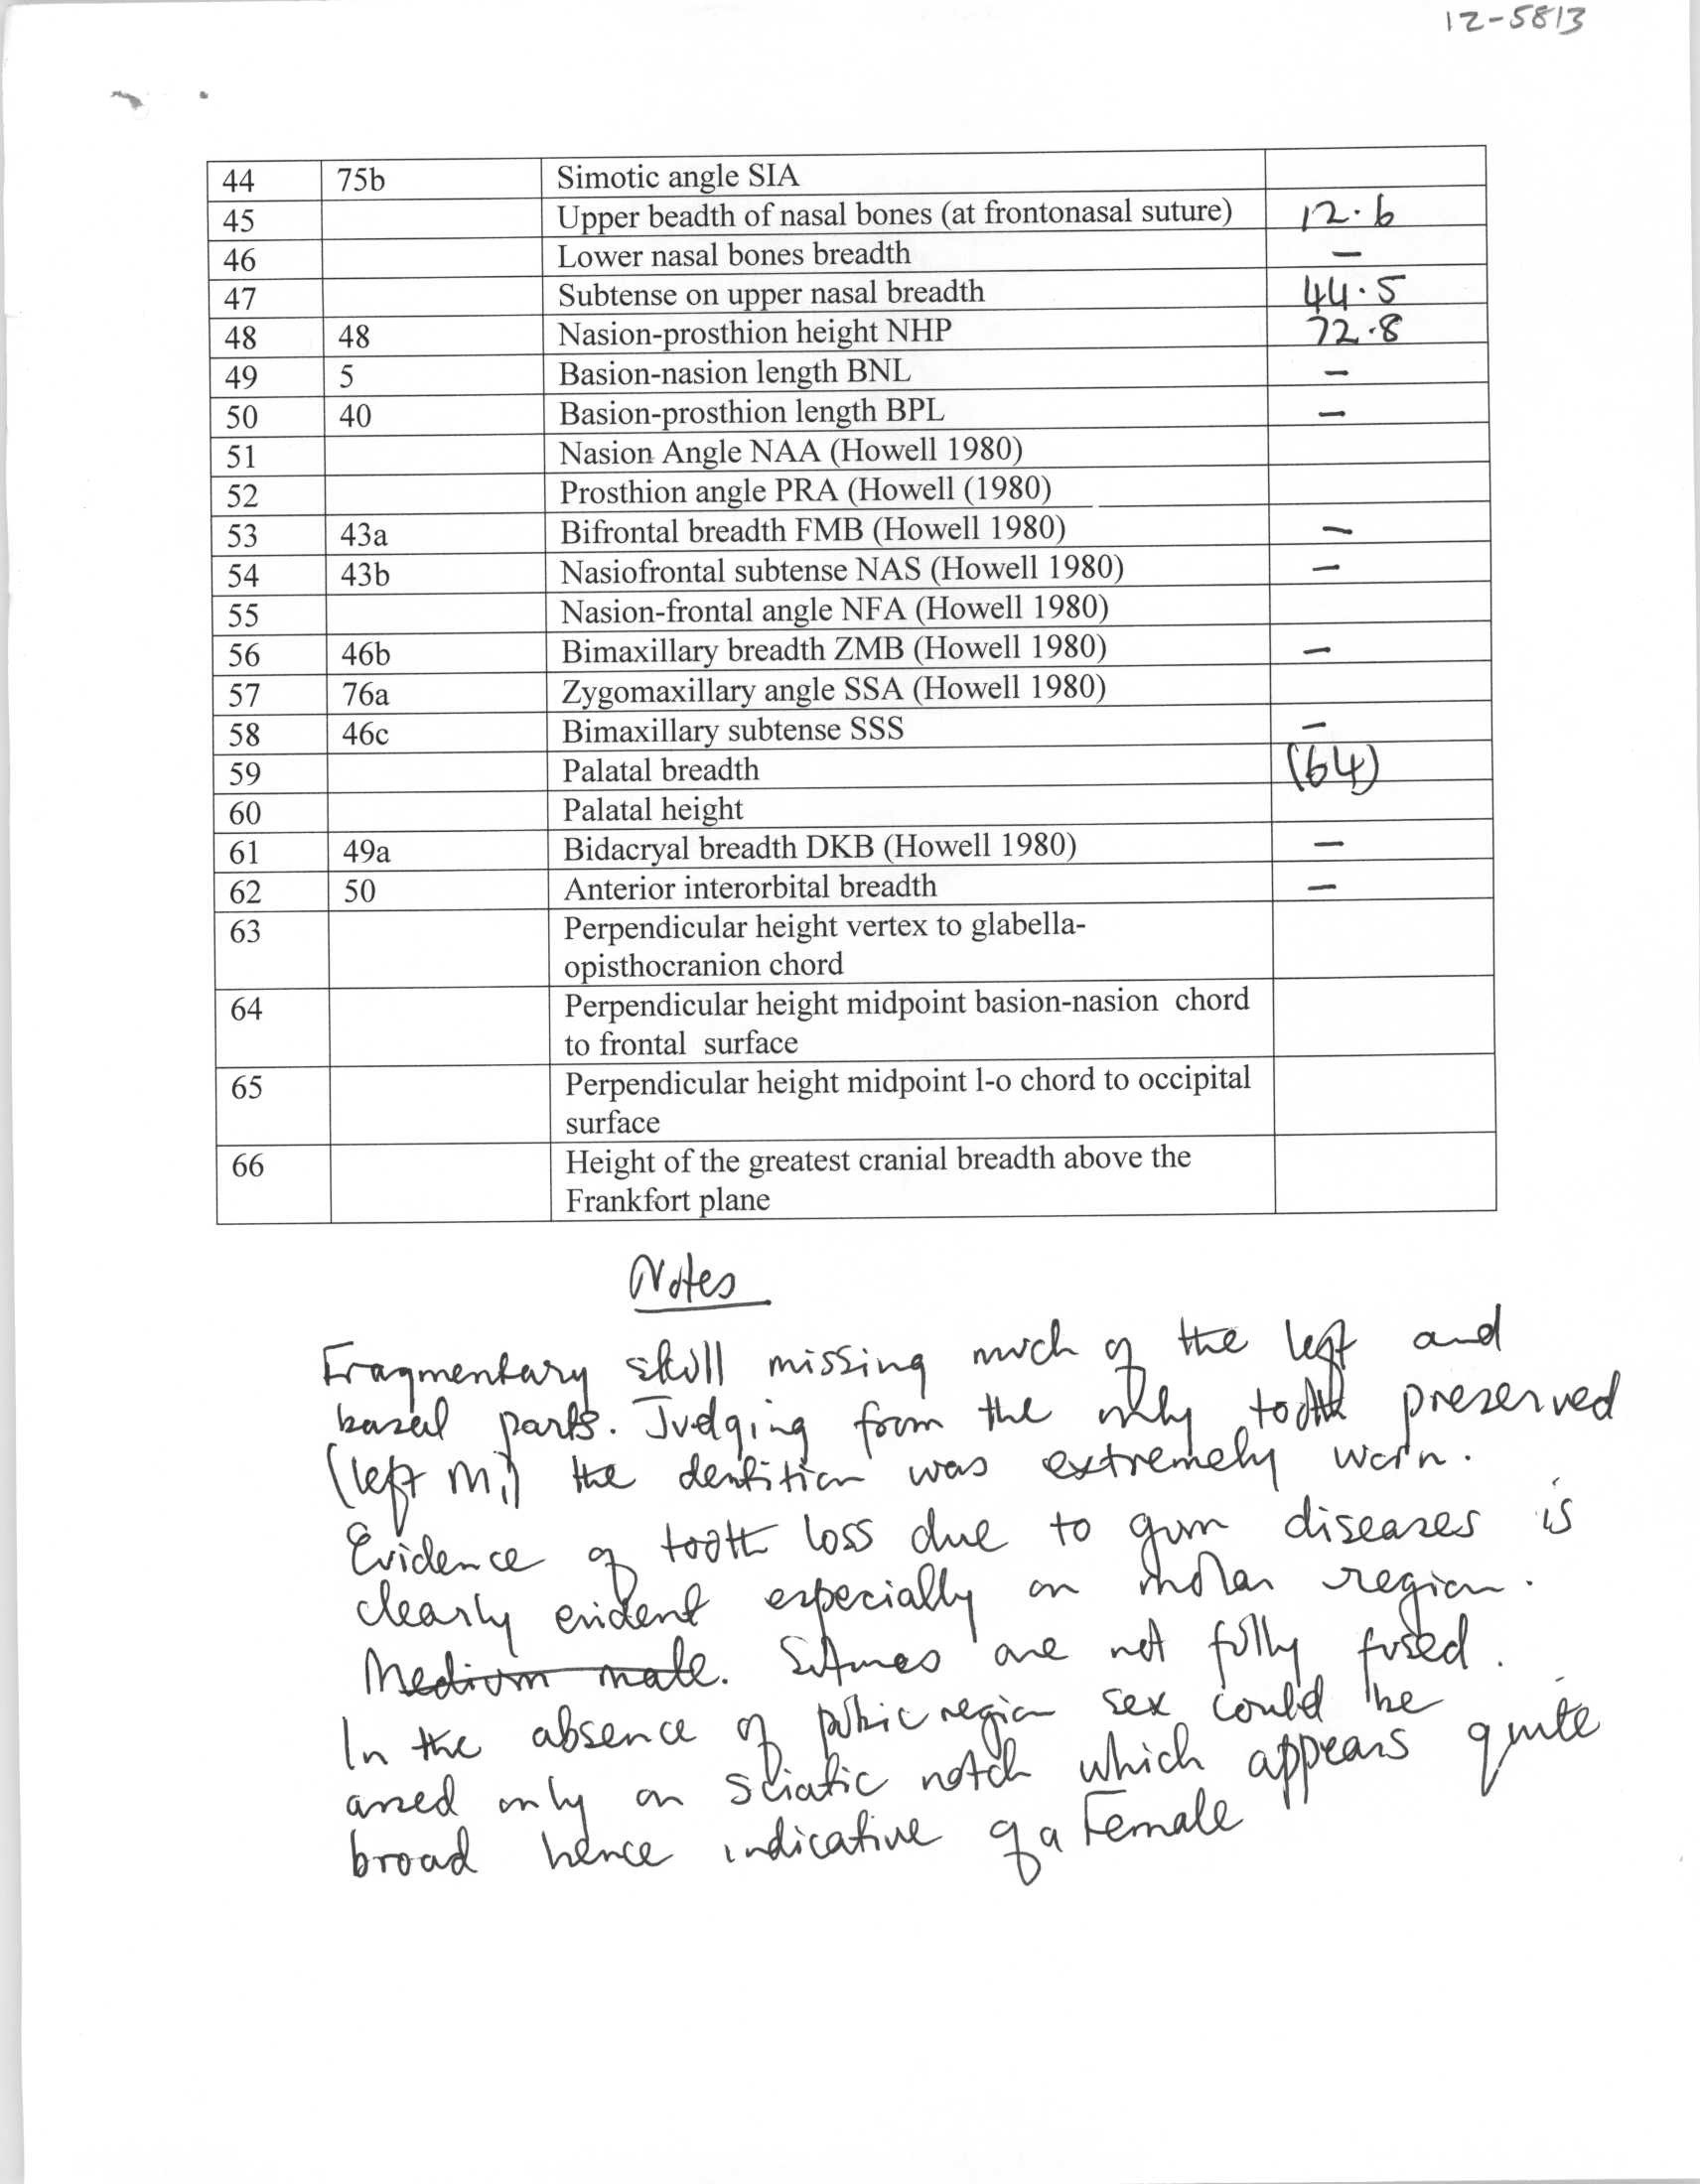 12-5813
44 75b Simotic angle SIA
45 Upper beadth of nasal bones (at frontonasal suture) 12.6
46 Lower nasal bones breadth –
47 Subtense on upper nasal breadth 44.5
48 48 Nasion-prosthion height NHP 72.8
49 5 Basion-nasion length BNL –
50 40 Basion-prosthion length BPL –
51 Nasion Angle NAA (Howell 1980)
52 Prosthion angle PRA (Howell (1980)
53 43a Bifrontal breadth FMB (Howell 1980) –
54 43b Nasiofrontal subtense NAS (Howell 1980) –
55 Nasion-frontal angle NFA (Howell 1980)
56 46b Bimaxillary breadth ZMB (Howell 1980) –
57 76a Zygomaxillary angle SSA (Howell 1980)
58 46c Bimaxillary subtense SSS –
59 Palatal breadth (64)
60 Palatal height
61 49a Bidacryal breadth DKB (Howell 1980) –
62 50 Anterior interorbital breadth –
63 Perpendicular height vertex to glabella-
opisthocranion chord
64 Perpendicular height midpoint basion-nasion chord
to frontal surface
65 Perpendicular height midpoint l-o chord to occipital
surface
66 Height of the greatest cranial breadth above the
Frankfort plane
Notes
Fragmentary skull missing much of the left and
basal parts. Judging from the only tooth preserved
(left M1) the dentition was extremely worn.
Evidence of tooth loss due to gum diseases is
clearly evident especially on molar region.
Medium male. Sutures are not fully fused.
In the absence of pubic region sex could be
only on sciatic notch which appears quite
broad hence indicative of a Female